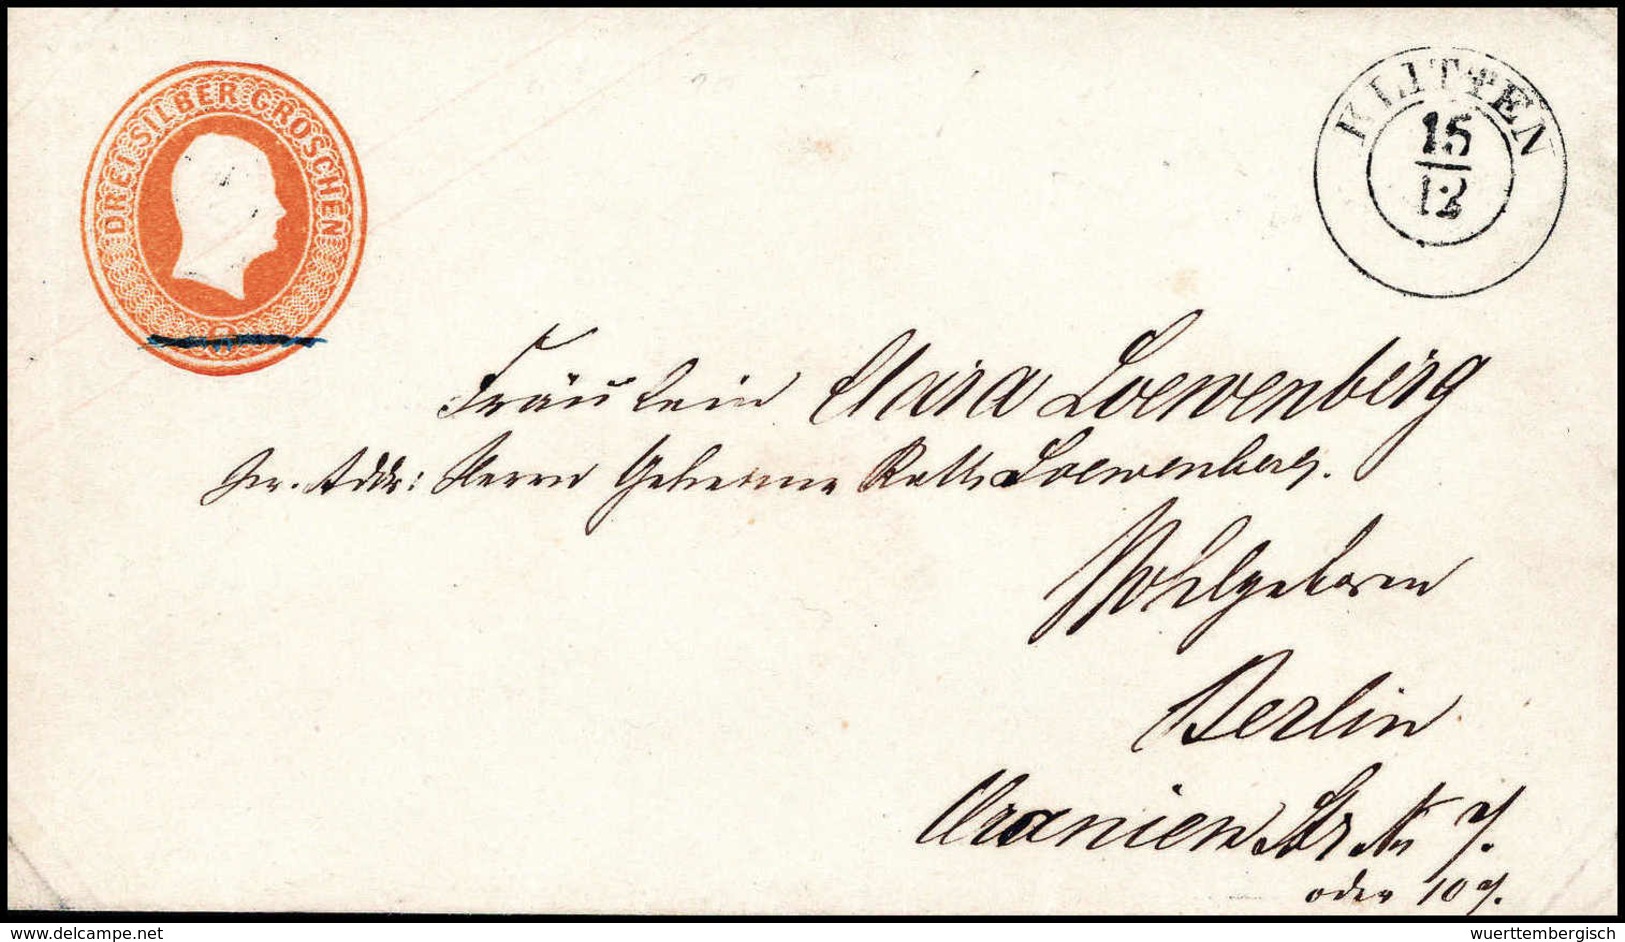 DREI SILBER GROSCHEN
KLITTEN
15
12
Fräulein Clara Loewenberg
pr. Addr: Herrn Geheime Rath Loewenberg.
Wohlgeboren
Berlin.
Oranien Str. No 7.
oder 107.
delcampe.com
wuerttembergisch